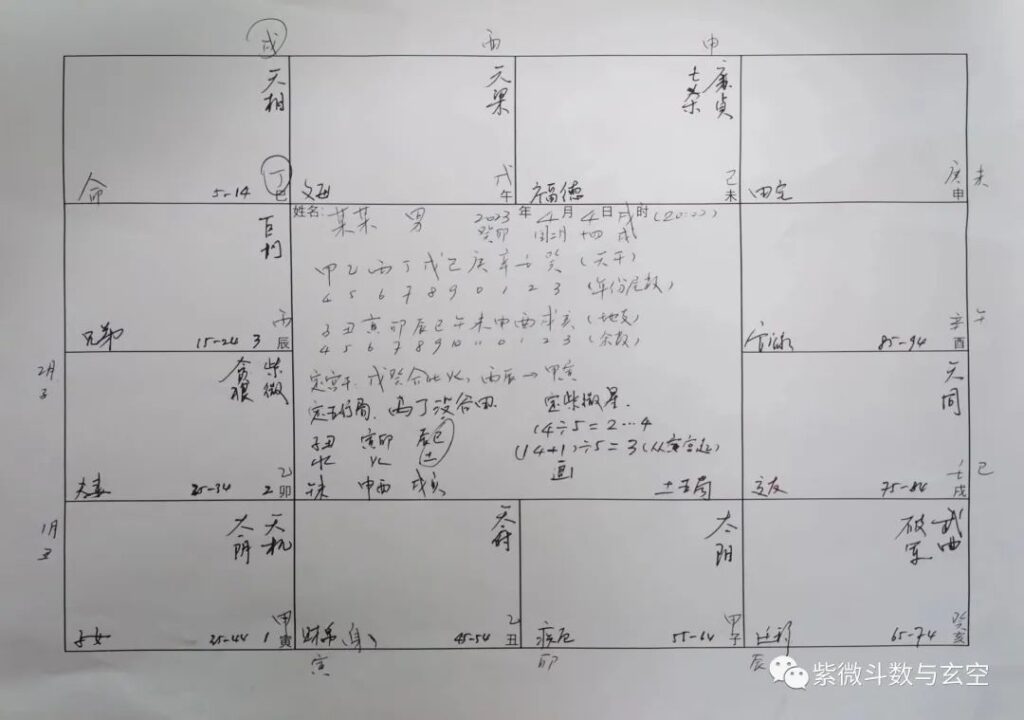 戌 酉 申
天相
命 5-14 丁巳
天梁
戊午
廉贞
七杀
福德 己未
田宅 庚申 未
巨门
兄弟 15-24 3 丙辰
姓名: 某某 男 2023年4月4日戌时(20:00)
癸卯 闰二月 十四 戌
甲乙丙丁戊己庚辛壬癸(天干)
4 5 6 7 8 9 0 1 2 3 (年份尾数)
子丑寅卯辰巳午未申酉戌亥(地支)
4 5 6 7 8 9 10 11 0 1 2 3 (余数)
定宫干,戊癸合化火,丙辰→甲寅
定五行局
定紫微星.
14÷5=2…4
(14+1)÷5=3(从寅宫起)
子丑 寅卯 辰巳
水 火 土
午未 申酉 戌亥
土五局
85-94 辛酉 午
2月
丑
贪狼
紫微
夫妻 25-34 2 乙卯
天同
交友 75-84 壬戌 巳
1月
子
太阴
天机
子女 35-44 1 甲寅
天府
财帛(身) 45-54 乙丑
寅
太阳
疾厄 55-64 甲子
卯
破军
武曲
迁移 65-74 癸亥
辰
紫微斗数与玄空